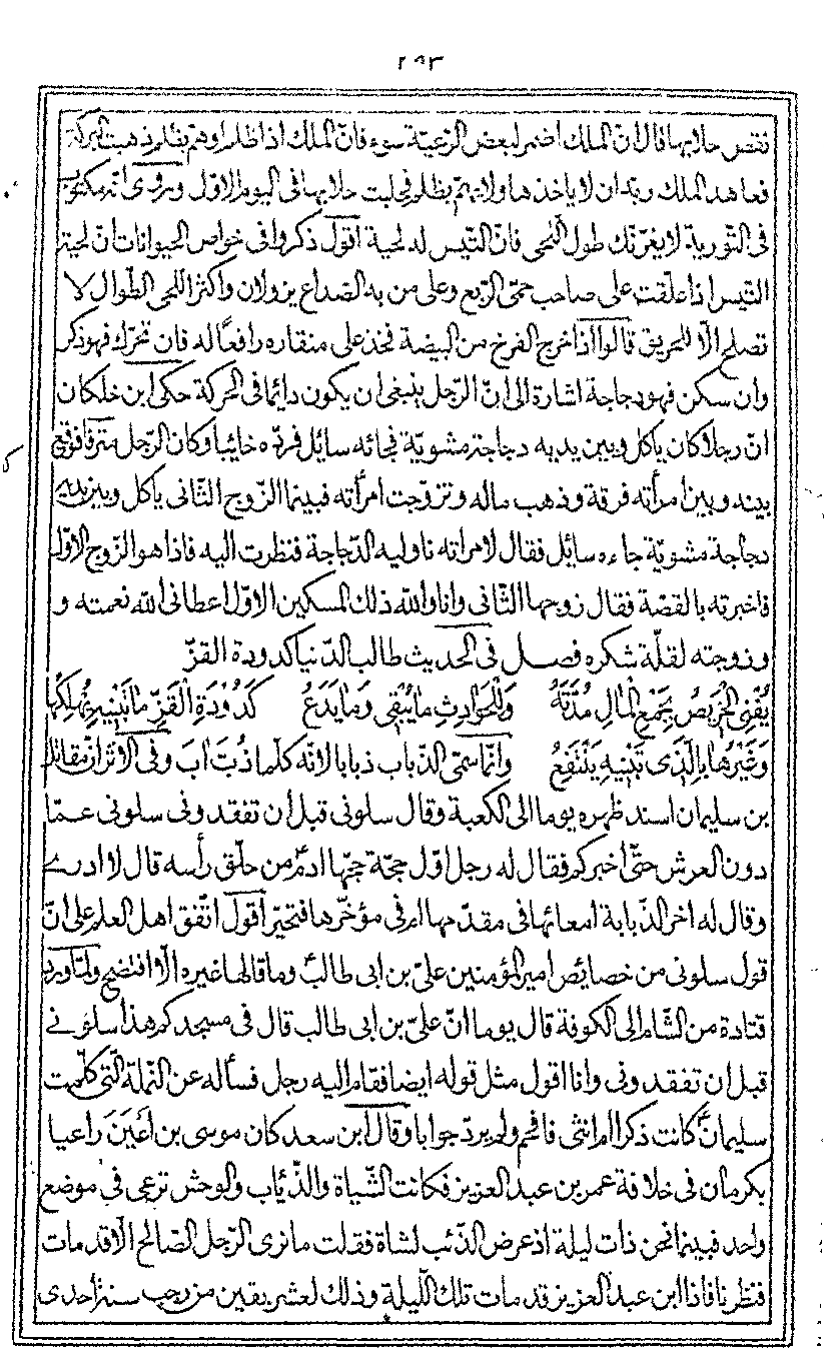 ٢٩٣
نقص حلابها قال لانّ الملك اضمر لبعض الرّعيّة سوء فانّ الملك اذا ظلم او همّ بظلم ذهبت البركة
فعاهد الملك ربّه ان لا ياخذها ولا يهمّ بظلم فحلبت حلابها فى اليوم الاوّل وروى انّه مكتوب
فى التّورية لا يغرّنّك طول اللّحى فانّ التّيس له لحية اقول ذكروا فى خواص الحيوانات انّ لحية
التّيس اذا علّقت على صاحب حمّى الرّبع وعلى من به الصّداع يزولان واكثر اللّحى الطّوال لا
تصلح الّا للحريق قالوا اذا خرج الفرخ من البيضة فخذ على منقاره رافعًا له فان تحرّك فهو ذكر
وان سكن فهو دجاجة اشارة الى انّ الرّجل ينبغى ان يكون دائما فى الحركة حكى ابن خلكان
انّ رجلا كان ياكل وبين يديه دجاجة مشويّة فجائه سايل فردّه خايبا وكان الرّجل مترفا فوقع
بينه وبين امرأته فرقة وذهب ماله وتزوّجت امرأته فبينما الزّوج الثّانى ياكل وبين يديه
دجاجة مشويّة جاءه سايل فقال لامراته ناوليه الدّجاجة فنظرت اليه فاذا هو الزّوج الاوّل
فاخبرته بالقصّة فقال زوجها الثّانى وانا والله ذلك المسكين الاوّل اعطانى الله نعمته و
وزوجته لقلّة شكره فصل فى الحديث طالب الدّنيا كدودة القزّ
يُفْنِى الْحَرِيصُ بِجَمْعِ الْمَالِ مُدَّتَهُ وَلِلْحَوادِثِ مايُبْقِى وَمايَدَعُ كَدُودَةِ الْقَزِّ ماتَبْنِيهِ يُهْلِكُها
وَغَيْرُها بِالَّذِى تَبْنِيهِ يَنْتَفِعُ وانّما سمّى الذّباب ذبابا لانّه كلّما ذُبَّ اَبَ وفى الاثر انّ مقاتل
بن سليمان اسند ظهره يوما الى الكعبة وقال سلونى قبل ان تفقدونى سلونى عمّا
دون العرش حتّى اخبركم فقال له رجل اوّل حجّة حجّها ادمؑ من حلّق رأسه قال لا ادرے
وقال له اخر الذّبابة امعائها فى مقدّمها ام فى مؤخّرها فتحيّر اقول اتّفق اهل العلم على انّ
قول سلونى من خصائص امير المؤمنين علىّ بن ابى طالبؑ وما قالها غيره الّا افتضح ولمّا ورد
قتادة من الشّام الى الكوفة قال يوما انّ علىّ بن ابى طالب قال فى مسجدكم هذا سلونے
قبل ان تفقدونى وانا اقول مثل قوله ايضا فقام اليه رجل فسأله عن النّملة الّتى كلّمت
سليمانؑ كانت ذكرا ام انثى فافحم ولم يردّ جوابا وقال ابن سعد كان موسى بن اَعْيَنَ راعيا
بكرمان فى خلافة عمر بن عبد العزيز فكانت الشّياة والذّئاب والوحش ترعى فى موضع
واحد فبينما نحن ذات ليلة اذ عرض الذّئب لشاة فقلت ما نرى الرّجل الصّالح الّا قد مات
فنظرنا فاذا ابن عبد العزيز قد مات تلك اللّيلة وذلك لعشر بقين من رجب سنة احدى